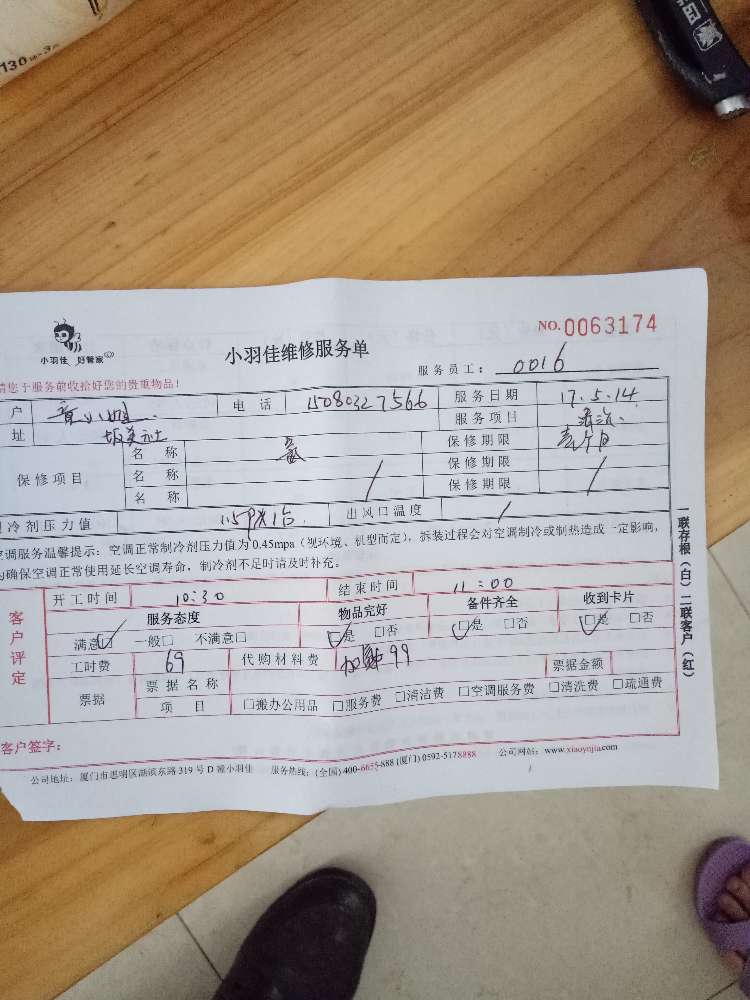 130
NO.0063174
小羽佳 好管家
小羽佳维修服务单
服务员工： 0016
请您于服务前收拾好您的贵重物品！
户 电 话 15080327566 服务日期 17.5.14
址 坂美社 服务项目 清洗
保修项目 名 称 保修期限 壹个月
名 称 / 保修期限 /
名 称 保修期限
制冷剂压力值 出风口温度 /
空调服务温馨提示：空调正常制冷剂压力值为0.45mpa（视环境、机型而定），拆装过程会对空调制冷或制热造成一定影响，
为确保空调正常使用延长空调寿命，制冷剂不足时请及时补充。
客户评定 开工时间 10:30 结束时间 11:00
服务态度 物品完好 备件齐全 收到卡片
满意☑ 一般□ 不满意□ ☑是 □否 ☑是 □否 ☑是 □否
工时费 69 代购材料费 加氟99 票据金额
票据 票据名称
项 目 □搬办公用品 □服务费 □清洁费 □空调服务费 □清洗费 □疏通费
客户签字：
公司地址：厦门市思明区湖滨东路319号D幢小羽佳 服务热线：(全国)400-6655-888 (厦门) 0592-5178888 公司网站：www.xiaoyujia.com
一联存根（白）二联客户（红）